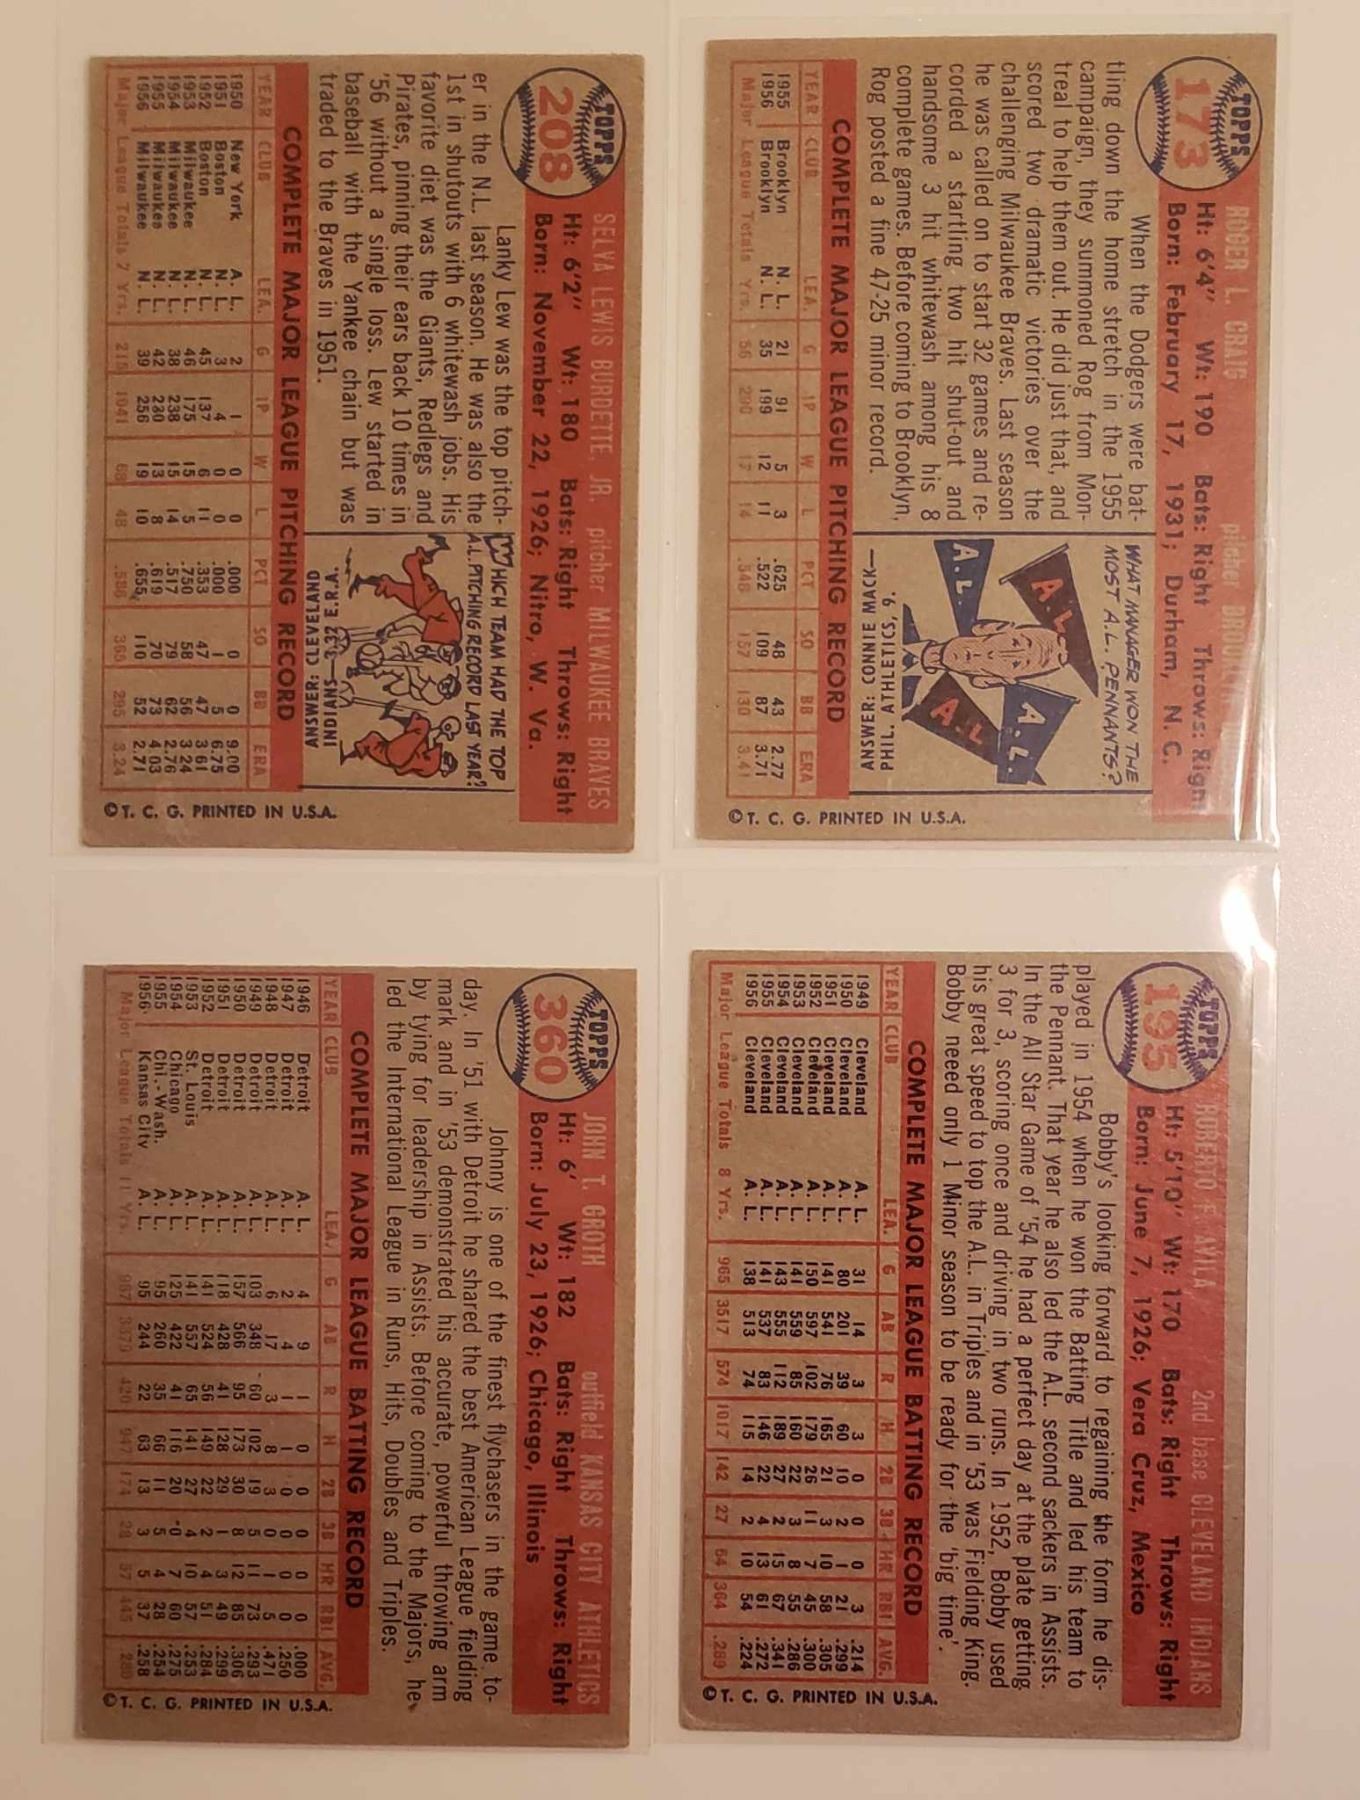 TOPPS
173
ROGER L. CRAIG pitcher
Ht: 6'4" Wt: 190 Bats: Right Throws: Right
Born: February 17, 1931; Durham, N. C.
When the Dodgers were bat-
tling down the home stretch in the 1955
campaign, they summoned Rog from Mon-
treal to help them out. He did just that, and
scored two dramatic victories over the
challenging Milwaukee Braves. Last season
he was called on to start 32 games and re-
corded a startling two hit shut-out and
handsome 3 hit whitewash among his 8
complete games. Before coming to Brooklyn,
Rog posted a fine 47-25 minor record.
WHAT MANAGER WON THE
MOST A.L. PENNANTS?
A.L.
A.L.
A.L.
A.L.
ANSWER: CONNIE MACK—
PHIL. ATHLETICS, 9.
COMPLETE MAJOR LEAGUE PITCHING RECORD
YEAR CLUB LEA. G IP W L PCT SO BB ERA
1955 Brooklyn N. L. 21 91 5 3 .625 48 43 2.77
1956 Brooklyn N. L. 35 199 12 11 .522 109 87 3.71
Major League Totals Yrs. 56 290 17 14 .548 157 130 3.41
© T. C. G. PRINTED IN U.S.A.
TOPPS
195
ROBERTO F. AVILA 2nd base CLEVELAND INDIANS
Ht: 5'10" Wt: 170 Bats: Right Throws: Right
Born: June 7, 1926; Vera Cruz, Mexico
Bobby's looking forward to regaining the form he dis-
played in 1954 when he won the Batting Title and led his team to
the Pennant. That year he also led the A.L. second sackers in Assists.
In the All Star Game of '54 he had a perfect day at the plate getting
3 for 3, scoring once and driving in two runs. In 1952, Bobby used
his great speed to top the A.L. in Triples and in '53 was Fielding King.
Bobby need only 1 Minor season to be ready for the 'big time'.
COMPLETE MAJOR LEAGUE BATTING RECORD
YEAR CLUB LEA. G AB R H 2B 3B HR RBI AVG.
1949 Cleveland A. L. 31 14 3 3 0 0 0 3 .214
1950 Cleveland A. L. 80 201 39 60 10 2 1 21 .299
1951 Cleveland A. L. 141 541 76 165 21 3 10 58 .305
1952 Cleveland A. L. 150 597 102 179 26 11 7 45 .300
1953 Cleveland A. L. 141 559 85 160 22 3 8 55 .286
1954 Cleveland A. L. 143 555 112 189 27 2 15 67 .341
1955 Cleveland A. L. 141 537 83 146 22 4 13 61 .272
1956 Cleveland A. L. 138 513 74 115 14 2 10 54 .224
Major League Totals 8 Yrs. 965 3517 574 1017 142 27 64 364 .289
© T. C. G. PRINTED IN U.S.A.
TOPPS
208
SELVA LEWIS BURDETTE, JR. pitcher MILWAUKEE BRAVES
Ht: 6'2" Wt: 180 Bats: Right Throws: Right
Born: November 22, 1926; Nitro, W. Va.
Lanky Lew was the top pitch-
er in the N.L. last season. He was also the
1st in shutouts with 6 whitewash jobs. His
favorite diet was the Giants, Redlegs and
Pirates, pinning their ears back 10 times in
'56 without a single loss. Lew started in
baseball with the Yankee chain but was
traded to the Braves in 1951.
WHICH TEAM HAD THE TOP
A.L. PITCHING RECORD LAST YEAR?
ANSWER: CLEVELAND
INDIANS—3.32 E.R.A.
COMPLETE MAJOR LEAGUE PITCHING RECORD
YEAR CLUB LEA. G IP W L PCT SO BB ERA
1950 New York A. L. 2 1 0 0 .000 0 0 9.00
1951 Boston N. L. 3 4 0 0 .000 1 5 6.75
1952 Boston N. L. 45 137 6 11 .353 47 47 3.61
1953 Milwaukee N. L. 46 175 15 5 .750 58 56 3.24
1954 Milwaukee N. L. 38 238 15 14 .517 79 62 2.76
1955 Milwaukee N. L. 42 230 13 8 .619 70 73 4.03
1956 Milwaukee N. L. 39 256 19 10 .655 110 52 2.71
Major League Totals 7 Yrs. 215 1041 68 48 .586 365 295 3.24
© T. C. G. PRINTED IN U.S.A.
TOPPS
360
JOHN T. GROTH outfield KANSAS CITY ATHLETICS
Ht: 6' Wt: 182 Bats: Right Throws: Right
Born: July 23, 1926; Chicago, Illinois
Johnny is one of the finest flychasers in the game to-
day. In '51 with Detroit he shared the best American League fielding
mark and in '53 demonstrated his accurate, powerful throwing arm
by tying for leadership in Assists. Before coming to the Majors, he
led the International League in Runs, Hits, Doubles and Triples.
COMPLETE MAJOR LEAGUE BATTING RECORD
YEAR CLUB LEA. G AB R H 2B 3B HR RBI AVG.
1946 Detroit A. L. 4 9 1 0 0 0 0 0 .000
1947 Detroit A. L. 2 4 1 1 0 0 0 0 .250
1948 Detroit A. L. 6 17 3 8 3 0 1 5 .471
1949 Detroit A. L. 103 348 60 102 19 5 11 73 .293
1950 Detroit A. L. 157 566 95 173 30 8 12 85 .306
1951 Detroit A. L. 118 428 41 128 29 1 3 49 .299
1952 Detroit A. L. 141 524 56 149 22 2 4 51 .284
1953 St. Louis A. L. 141 557 65 141 27 4 10 57 .253
1954 Chicago A. L. 125 422 41 116 20 0 7 60 .275
1955 Chi.-Wash. A. L. 95 260 35 66 11 5 4 28 .254
1956 Kansas City A. L. 95 244 22 63 13 3 5 37 .258
Major League Totals 11 Yrs. 987 3379 420 947 174 28 57 445 .280
© T. C. G. PRINTED IN U.S.A.